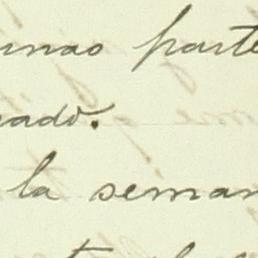 unas parte
ado.
la seman